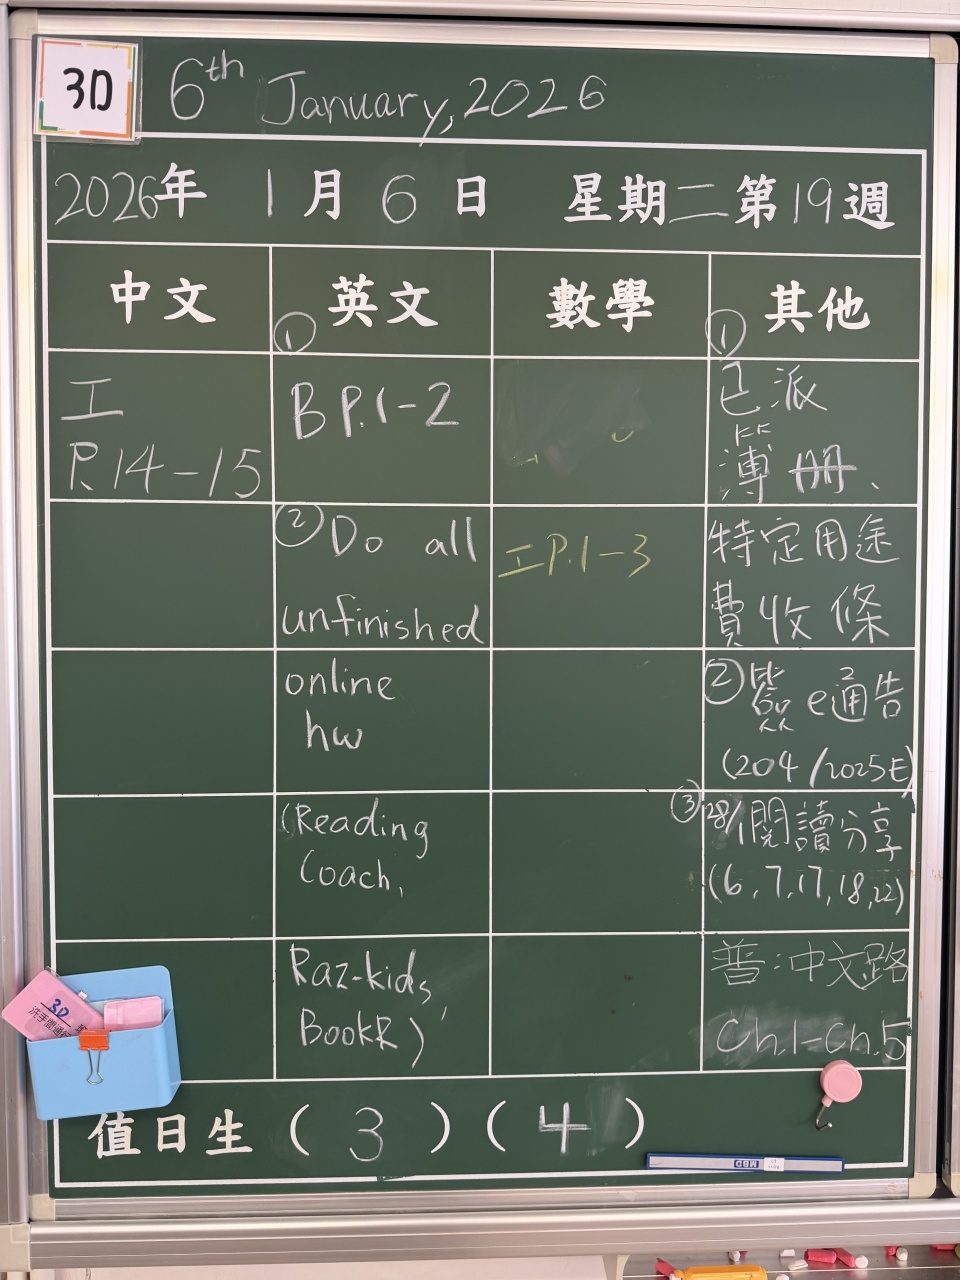 3D
6th January, 2026
2026年 1月6日 星期二第19週
中文
工
P.14-15
英文
①
B P.1-2
② Do all
unfinished
online
hw
(Reading
Coach,
Raz-kids,
BookR)
數學
工P.1-3
其他
①
已派
簿冊、
特定用途
費收條
②簽e通告
(204/2025E)
③28/1閱讀分享
(6,7,17,18,22)
普:中文路
Ch.1-Ch.5
值日生(3)(4)
3D
洗手間通行
MBD